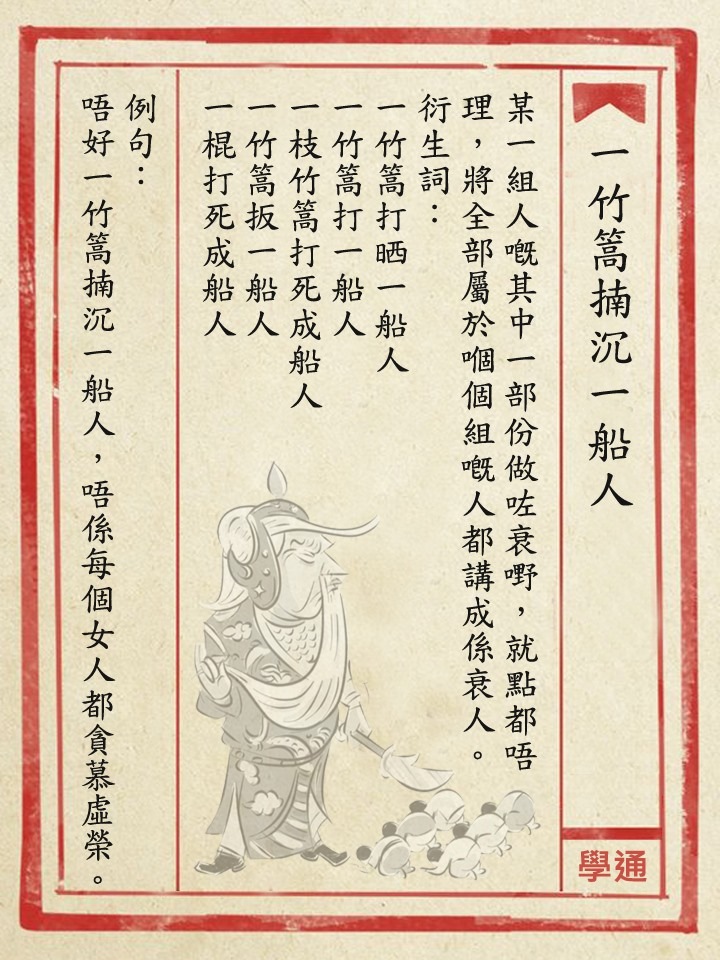 一竹篙揇沉一船人
某一組人嘅其中一部份做咗衰嘢，就點都唔
理，將全部屬於嗰個組嘅人都講成係衰人。
衍生詞：
一竹篙打晒一船人
一竹篙打一船人
一枝竹篙打死成船人
一竹篙扳一船人
一棍打死成船人
例句：
唔好一竹篙揇沉一船人，唔係每個女人都貪慕虛榮。
學通